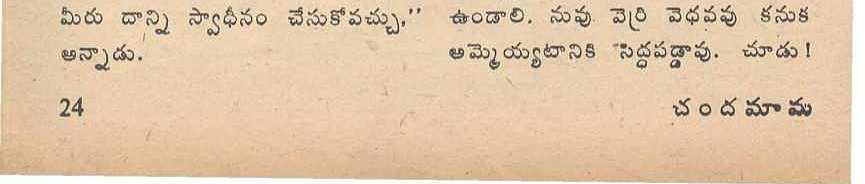 మీరు దాన్ని స్వాధీనం చేసుకోవచ్చు,''
అన్నాడు.
ఉండాలి. నువు వెర్రి వెధవవు కనుక
అమ్మెయ్యటానికి సిద్ధపడ్డావు. చూడు!
24
చందమామ